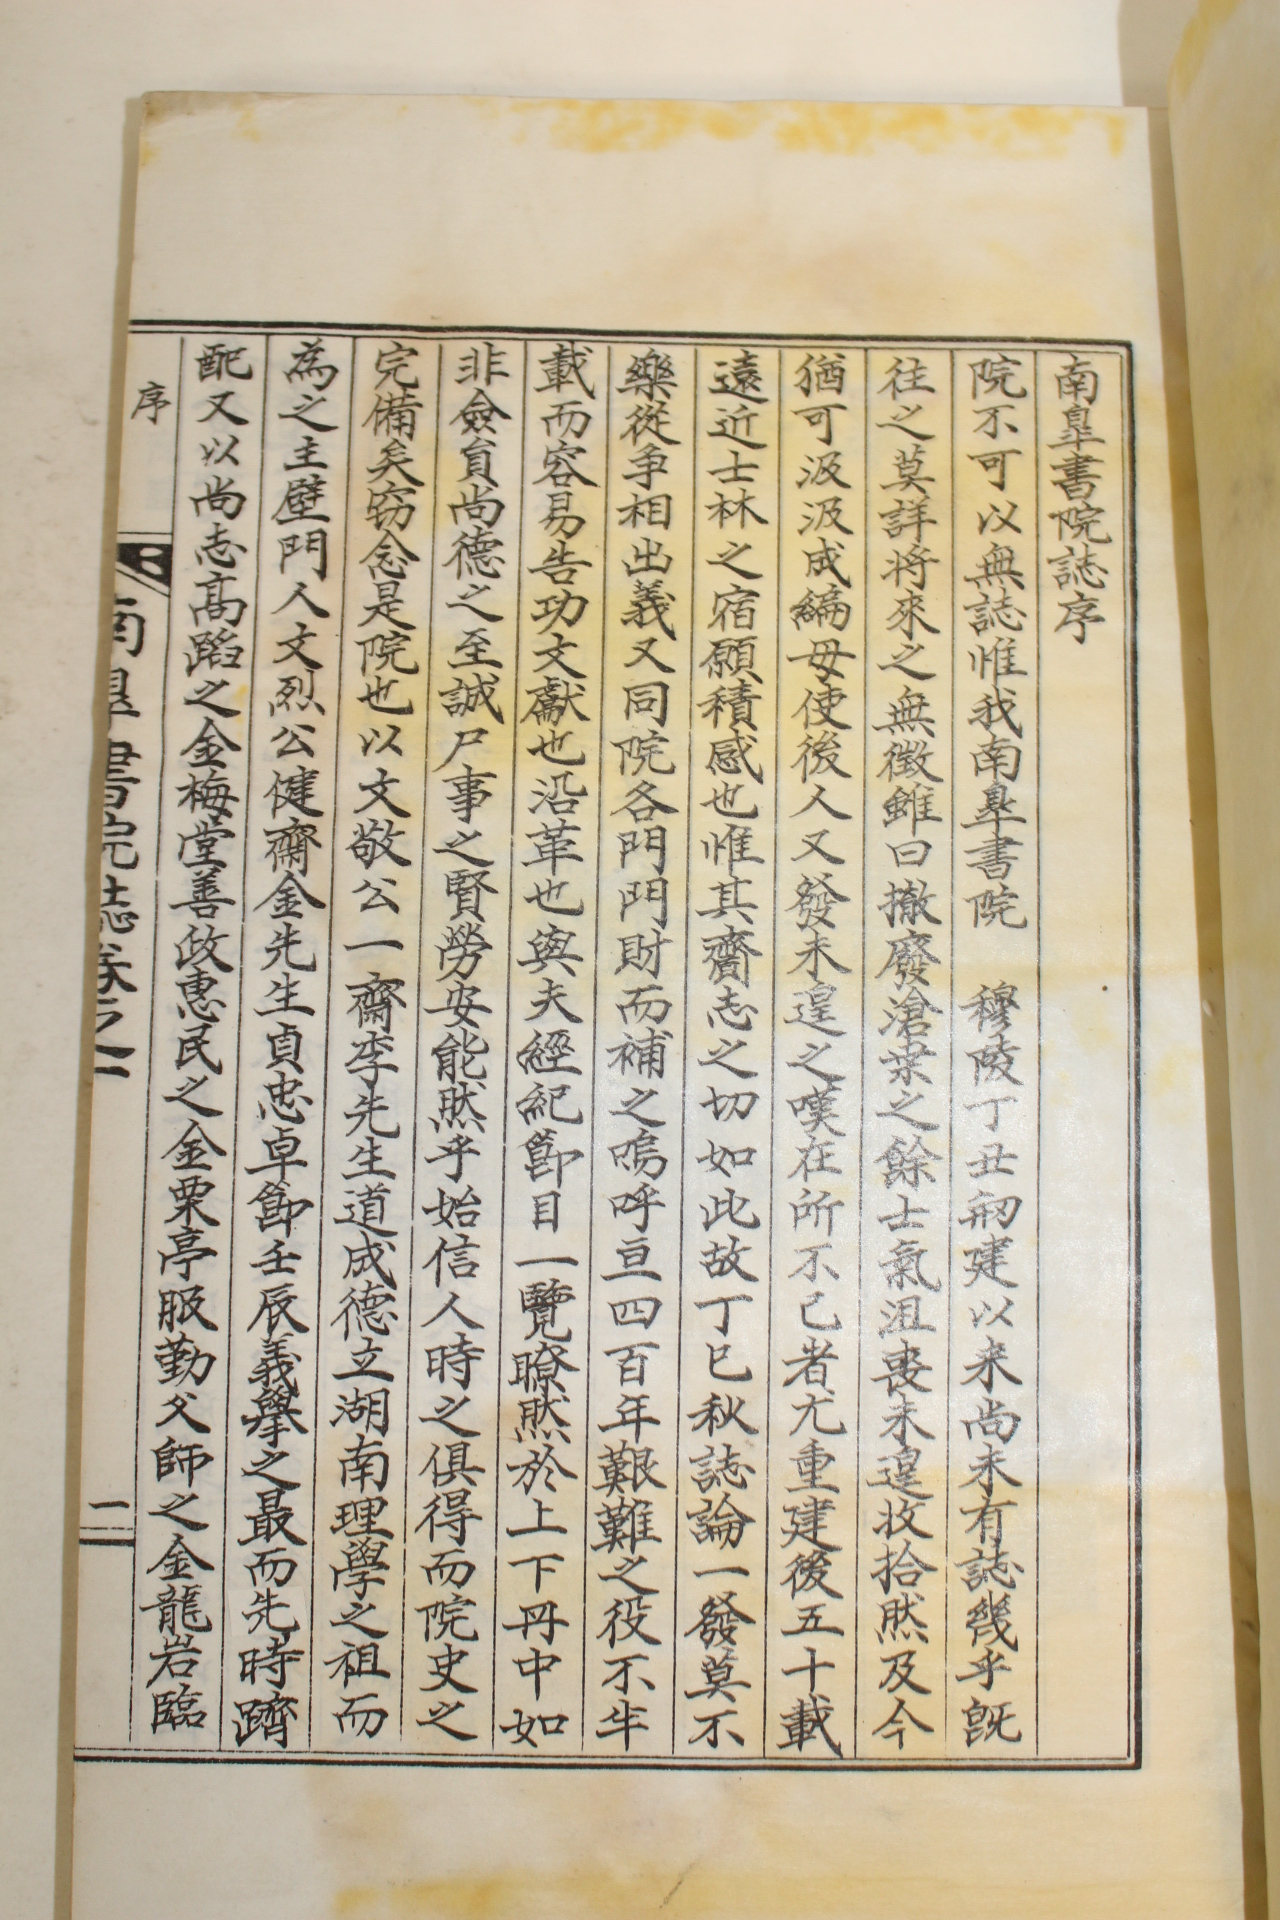 南皐書院誌序
院不可以無誌惟我南皐書院 穆陵丁丑刱建以来尚未有誌幾乎旣
往之莫詳將來之無徵雖曰撤廢滄桒之餘士氣沮喪未遑收拾然及今
猶可汲汲成編毋使後人又發未遑之嘆在所不已者尤重建後五十載
遠近士林之宿願積感也惟其齎志之切如此故丁巳秋誌論一發莫不
樂從爭相出義又同院各門門財而補之嗚呼亘四百年艱難之役不半
載而容易告功文獻也沿革也與夫經紀節目一覽瞭然於上下冊中如
非僉員尚德之至誠尸事之賢勞安能然乎始信人時之俱得而院史之
完備矣窃念是院也以文敬公一齋李先生道成德立湖南理學之祖而
為之主壁門人文烈公健齋金先生貞忠卓節壬辰義擧之最而先時躋
配又以尚志高蹈之金梅堂善政惠民之金栗亭服勤父師之金龍岩臨
序
南皐書院誌卷之一
一